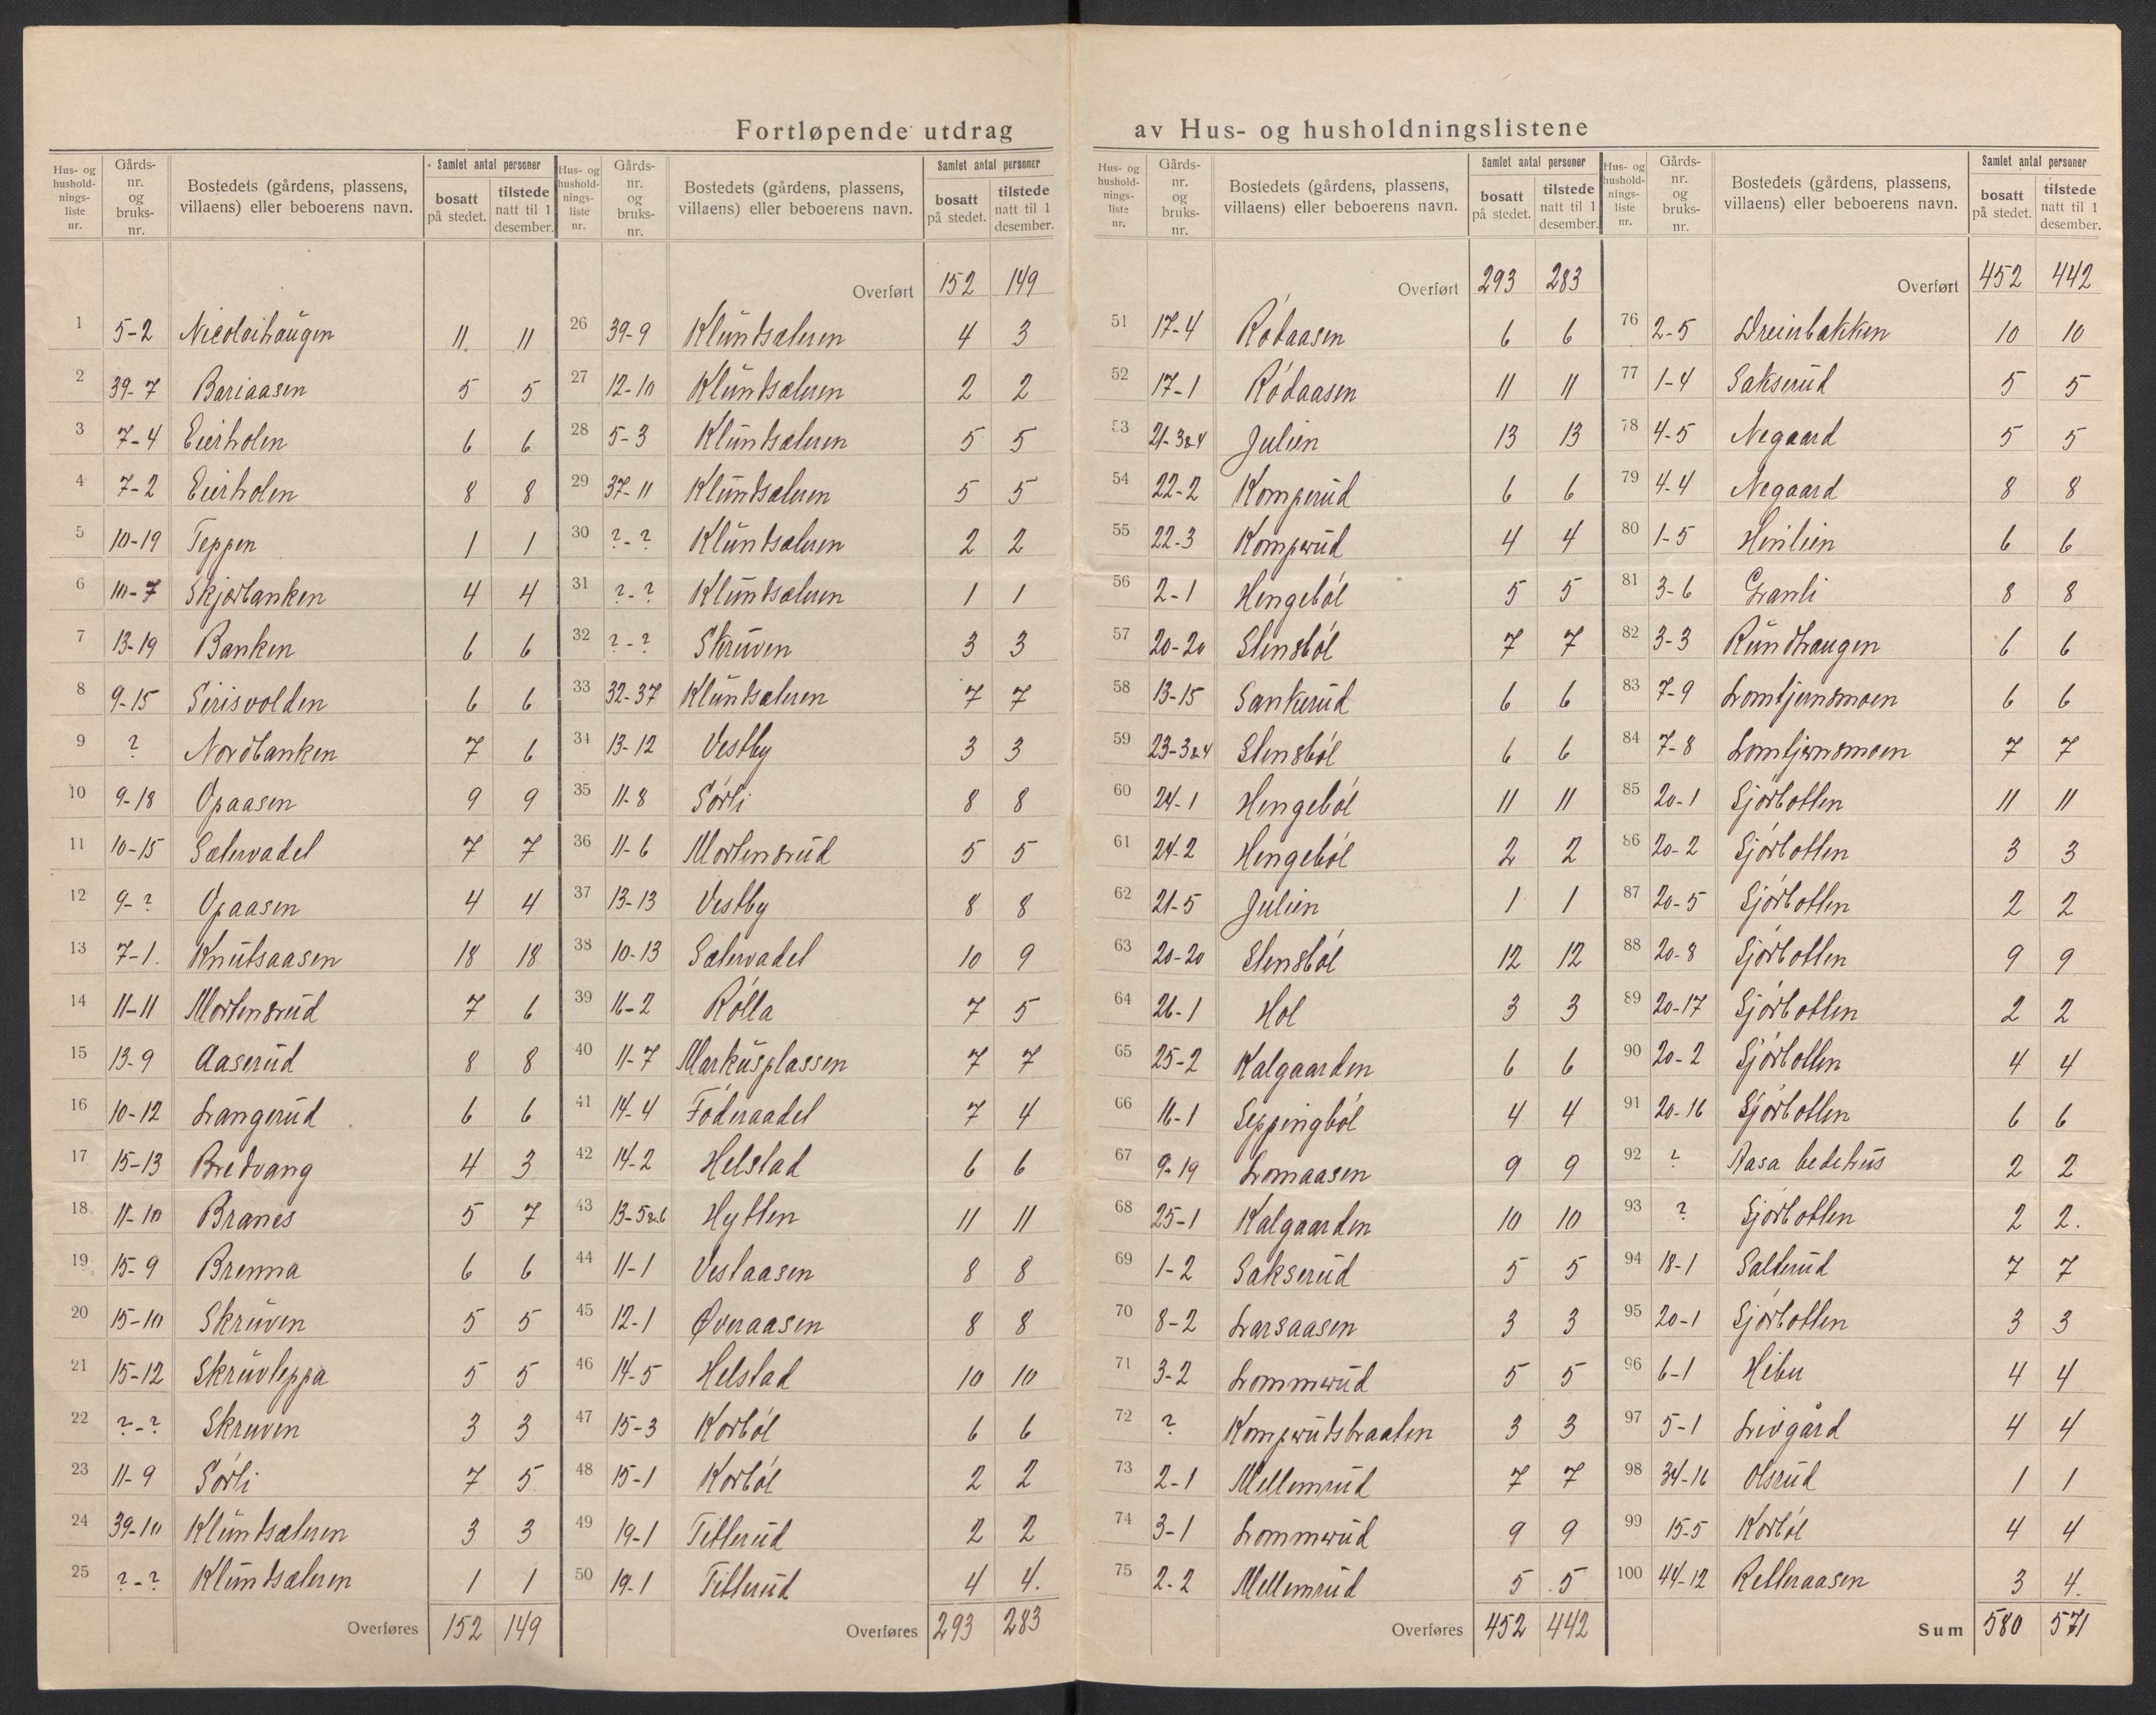 Fortløpende utdrag av Hus- og husholdningslistene
Hus- og husholdnings-liste nr. | Gårds-nr. og bruks-nr. | Bostedets (gårdens, plassens, villaens) eller beboerens navn. | Samlet antal personer bosatt på stedet. | tilstede natt til 1 desember.
1 5-2 Nicolaihaugen 11 11
2 39-7 Bariaasen 5 5
3 7-4 Eierholen 6 6
4 7-2 Eierholen 8 8
5 10-19 Teppen 1 1
6 10-7 Skjørbanken 4 4
7 13-19 Banken 6 6
8 9-15 Sirisvolden 6 6
9 ? Nordbanken 7 6
10 9-18 Opaasen 9 9
11 10-15 Sætervadet 7 7
12 9-? Opaasen 4 4
13 7-1. Knutsaasen 18 18
14 11-11 Mortensrud 7 6
15 13-9 Aaserud 8 8
16 10-12 Langerud 6 6
17 15-13 Bredvang 4 3
18 11-10 Branes 5 7
19 15-9 Brenna 6 6
20 15-10 Skruven 5 5
21 15-12 Skruvteppa 5 5
22 ?-? Skruven 3 3
23 11-9 Sørli 7 5
24 39-10 Klundsæteren 3 3
25 ?-? Klundsæteren 1 1
Overføres 152 149
Hus- og husholdnings-liste nr. | Gårds-nr. og bruks-nr. | Bostedets (gårdens, plassens, villaens) eller beboerens navn. | Samlet antal personer bosatt på stedet. | tilstede natt til 1 desember.
Overført 152 149
26 39-9 Klundsæteren 4 3
27 12-10 Klundsæteren 2 2
28 5-3 Klundsæteren 5 5
29 37-11 Klundsæteren 5 5
30 ?-? Klundsæteren 2 2
31 ?-? Klundsæteren 1 1
32 ?-? Skruven 3 3
33 32-37 Klundsæteren 7 7
34 13-12 Vestby 3 3
35 11-8 Sørli 8 8
36 11-6 Mortensrud 5 5
37 13-13 Vestby 8 8
38 10-13 Sætervadet 10 9
39 16-2 Rølla 7 5
40 11-7 Markusplassen 7 7
41 14-4 Føderaadet 7 4
42 14-2 Helstad 6 6
43 13-5&6 Hytten 11 11
44 11-1 Vestaasen 8 8
45 12-1 Øveraasen 8 8
46 14-5 Helstad 10 10
47 15-3 Korbøl 6 6
48 15-1 Korbøl 2 2
49 19-1 Titterud 2 2
50 19-1 Titterud 4 4.
Overføres 293 283
Hus- og husholdnings-liste nr. | Gårds-nr. og bruks-nr. | Bostedets (gårdens, plassens, villaens) eller beboerens navn. | Samlet antal personer bosatt på stedet. | tilstede natt til 1 desember.
Overført 293 283
51 17-4 Rødaasen 6 6
52 17-1 Rødaasen 11 11
53 21-3&4 Julien 13 13
54 22-2 Komperud 6 6
55 22-3 Komperud 4 4
56 2-1 Hengebøl 5 5
57 20-20 Stensbøl 7 7
58 13-15 Sankerud 6 6
59 23-3&4 Stensbøl 6 6
60 24-1 Hengebøl 11 11
61 24-2 Hengebøl 2 2
62 21-5 Julien 1 1
63 20-20 Stensbøl 12 12
64 26-1 Hol 3 3
65 25-2 Kalgaarden 6 6
66 16-1 Seppingbøl 4 4
67 9-19 Lomaasen 9 9
68 25-1 Kalgaarden 10 10
69 1-2 Sakserud 5 5
70 8-2 Larsaasen 3 3
71 3-2 Lommerud 5 5
72 ? Komperudsbraaten 3 3
73 2-1 Mellemrud 7 7
74 3-1 Lommerud 9 9
75 2-2 Mellemrud 5 5
Overføres 452 442
Hus- og husholdnings-liste nr. | Gårds-nr. og bruks-nr. | Bostedets (gårdens, plassens, villaens) eller beboerens navn. | Samlet antal personer bosatt på stedet. | tilstede natt til 1 desember.
Overført 452 442
76 2-5 Dreierbakken 10 10
77 1-4 Sakserud 5 5
78 4-5 Negaard 5 5
79 4-4 Negaard 8 8
80 1-5 Henlien 6 6
81 3-6 Granli 8 8
82 3-3 Rundhaugen 6 6
83 7-9 Lomtjernsmoen 6 6
84 7-8 Lomtjernsmoen 7 7
85 20-1 Sjørbotten 11 11
86 20-2 Sjørbotten 3 3
87 20-5 Sjørbotten 2 2
88 20-8 Sjørbotten 9 9
89 20-17 Sjørbotten 2 2
90 20-2 Sjørbotten 4 4
91 20-16 Sjørbotten 6 6
92 ? Aasa bedehus 2 2
93 ? Sjørbotten 2 2.
94 18-1 Salterud 7 7
95 20-1 Sjørbotten 3 3
96 6-1 Hibu 4 4
97 5-1 Livgård 4 4
98 34-16 Olsrud 1 1
99 15-5 Korbøl 4 4
100 44-12 Retteraasen 3 4.
Sum 580 571